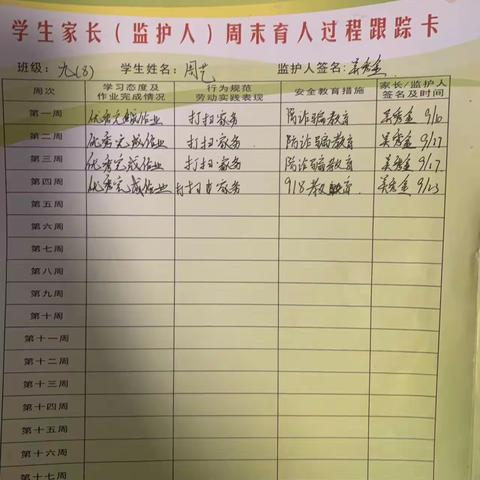 学生家长（监护人）周末育人过程跟踪卡
班级：九(8) 学生姓名：周艺 监护人签名：吴秀金
周次 学习态度及作业完成情况 行为规范劳动实践表现 安全教育措施 家长/监护人签名及时间
第一周 优秀完成作业 打扫家务 防诈骗教育 吴秀金 9/10
第二周 优秀完成作业 打扫家务 防诈骗教育 吴秀金 9/17
第三周 优秀完成作业 打扫家务 防诈骗教育 吴秀金 9/17
第四周 优秀完成作业 打扫 家务 918教育 吴秀金 9/23
第五周
第六周
第七周
第八周
第九周
第十周
第十一周
第十二周
第十三周
第十四周
第十五周
第十六周
第十七周